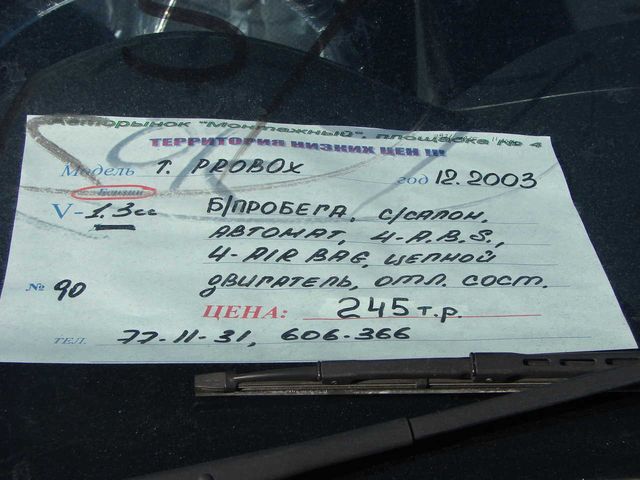 Авторынок "Монтажный", площадка № 4
ТЕРРИТОРИЯ НИЗКИХ ЦЕН !!!
Модель T. PROBOX год 12.2003
Бензин
V- 1.3 cc Б/ПРОБЕГА, С/САЛОН,
АВТОМАТ, 4-A.B.S.,
4-AIR BAG, ЦЕПНОЙ
№ 90 ДВИГАТЕЛЬ, ОТЛ. СОСТ.
ЦЕНА: 245 т.р.
ТЕЛ. 77-11-31, 606-366